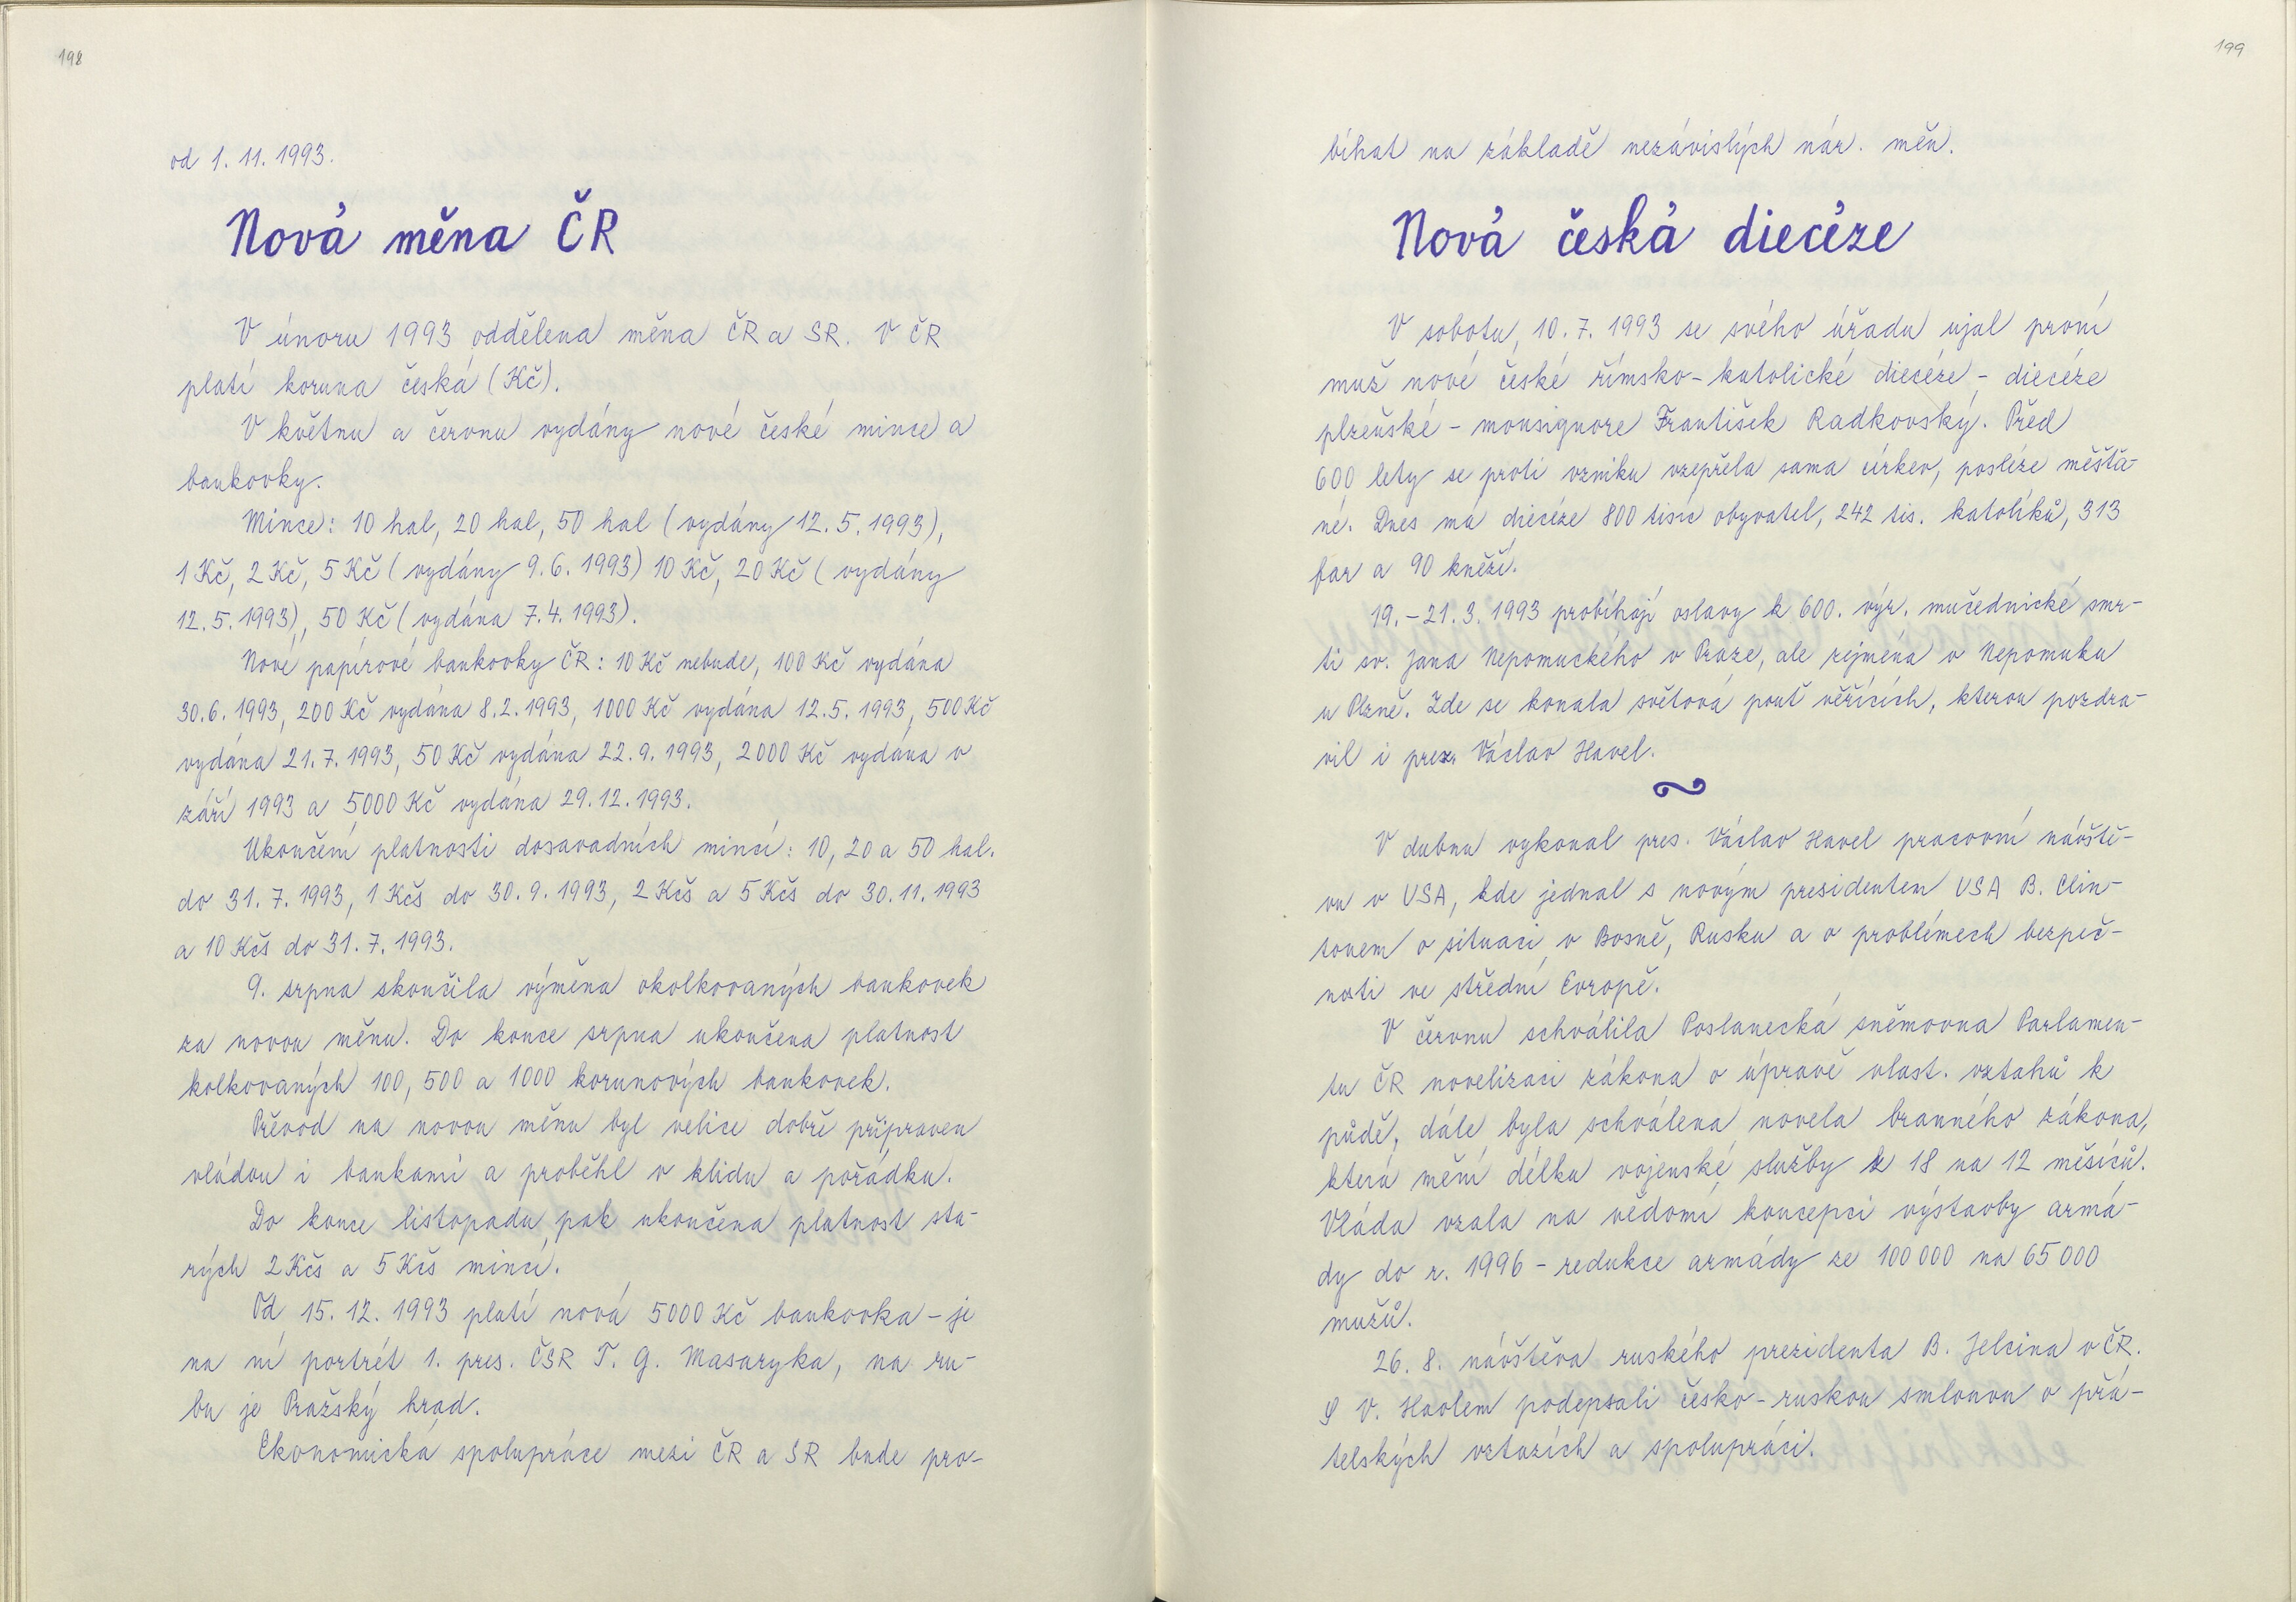 198
od 1. 11. 1993.
Nová měna ČR
V únoru 1993 oddělena měna ČR a SR. V ČR
platí koruna česká (Kč).
V květnu a červnu vydány nové české mince a
bankovky.
Mince: 10 hal, 20 hal, 50 hal (vydány 12. 5. 1993),
1 Kč, 2 Kč, 5 Kč (vydány 9. 6. 1993) 10 Kč, 20 Kč (vydány
12. 5. 1993), 50 Kč (vydána 7. 4. 1993).
Nové papírové bankovky ČR: 10 Kč nebude, 100 Kč vydána
30. 6. 1993, 200 Kč vydána 8. 2. 1993, 1000 Kč vydána 12. 5. 1993, 500 Kč
vydána 21. 7. 1993, 50 Kč vydána 22. 9. 1993, 2000 Kč vydána v
září 1993 a 5000 Kč vydána 29. 12. 1993.
Ukončení platnosti dosavadních mincí: 10, 20 a 50 hal.
do 31. 7. 1993, 1 Kčs do 30. 9. 1993, 2 Kčs a 5 Kčs do 30. 11. 1993
a 10 Kčs do 31. 7. 1993.
9. srpna skončila výměna okolkovaných bankovek
za novou měnu. Do konce srpna ukončena platnost
kolkovaných 100, 500 a 1000 korunových bankovek.
Převod na novou měnu byl velice dobře připraven
vládou i bankami a proběhl v klidu a pořádku.
Do konce listopadu pak ukončena platnost sta-
rých 2 Kčs a 5 Kčs mincí.
Od 15. 12. 1993 platí nová 5000 Kč bankovka - je
na ní portrét 1. pres. ČSR T. G. Masaryka, na ru-
bu je Pražský hrad.
Ekonomická spolupráce mezi ČR a SR bude pro-
199
bíhat na základě nezávislých nár. měn.
Nová česká diecéze
V sobotu, 10. 7. 1993 se svého úřadu ujal první
muž nové české římsko-katolické diecéze - diecéze
plzeňské - monsignore František Radkovský. Před
600 lety se proti vzniku vzepřela sama církev, posléze měšťa-
né. Dnes má diecéze 800 tisíc obyvatel, 242 tis. katolíků, 313
far a 90 kněží.
19. - 21. 3. 1993 probíhají oslavy k 600. výr. mučednické smr-
ti sv. Jana Nepomuckého v Praze, ale zejména v Nepomuku
u Plzně. Zde se konala světová pouť věřících, kterou pozdra-
vil i prez. Václav Havel.
V dubnu vykonal pres. Václav Havel pracovní návště-
vu v USA, kde jednal s novým presidentem USA B. Clin-
tonem o situaci v Bosně, Rusku a o problémech bezpeč-
nosti ve střední Evropě.
V červnu schválila Poslanecká sněmovna Parlamen-
tu ČR novelizaci zákona o úpravě vlast. vztahů k
půdě, dále byla schválena novela branného zákona,
která mění délku vojenské služby z 18 na 12 měsíců.
Vláda vzala na vědomí koncepci výstavby armá-
dy do r. 1996 - redukce armády ze 100 000 na 65 000
mužů.
26. 8. návštěva ruského prezidenta B. Jelcina v ČR.
S V. Havlem podepsali česko-ruskou smlouvu o přá-
telských vztazích a spolupráci.